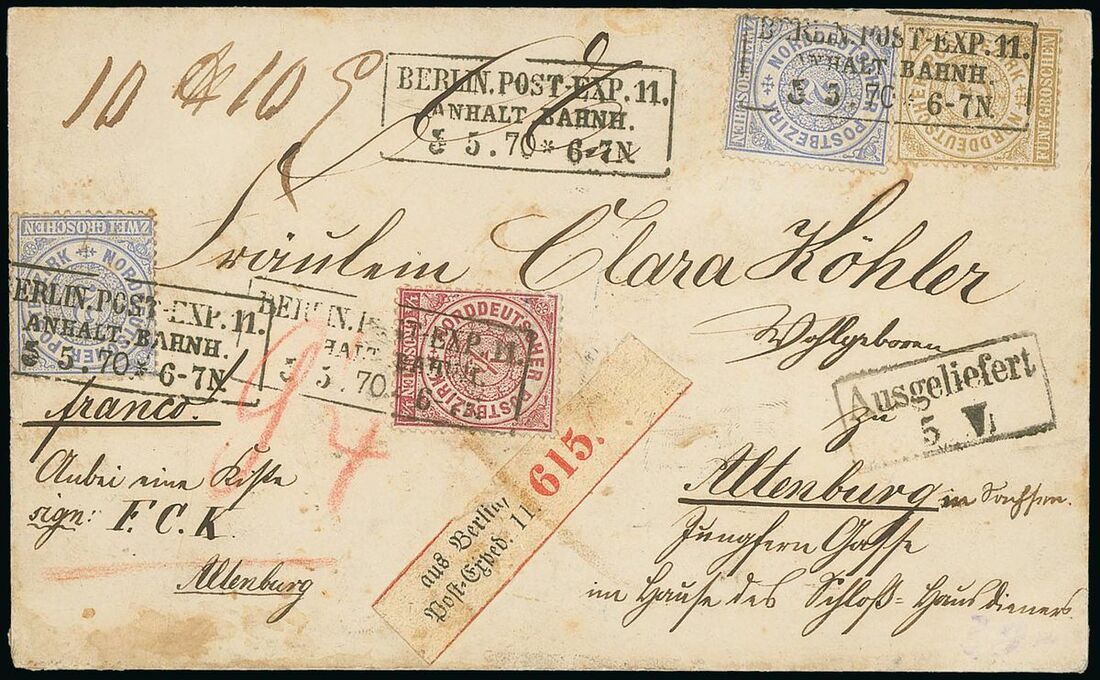 10 ℔ 10
BERLIN.POST-EXP.11.
ANHALT. BAHNH.
5.70 * 6-7N.
BERLIN.POST-EXP.11.
ANHALT BAHNH.
5.70 * 6-7N.
NORDDEUTSCHER POSTBEZIRK
ZWEI GROSCHEN
2
NORDDEUTSCHER POSTBEZIRK
FÜNF GROSCHEN
Fräulein Clara Köhler
Wohlgeboren
zu
Altenburg in Sachsen.
Jungfern Gasse
im Hause des Schloß=Hausdieners
Ausgeliefert
5 VI
ZWEI GROSCHEN
NORDDEUTSCHER POSTBEZIRK
BERLIN.POST-EXP.11.
ANHALT.BAHNH.
5.70 * 6-7N.
BERLIN.POST-EXP.11.
ANHALT. BAHNH.
5.70 * 6-7N.
NORDDEUTSCHER POSTBEZIRK
GROSCHEN
franco.
94
Anbei eine Kiste
sign: F.C.K.
Altenburg
aus Berlin,
Post-Exped. 11.
615.